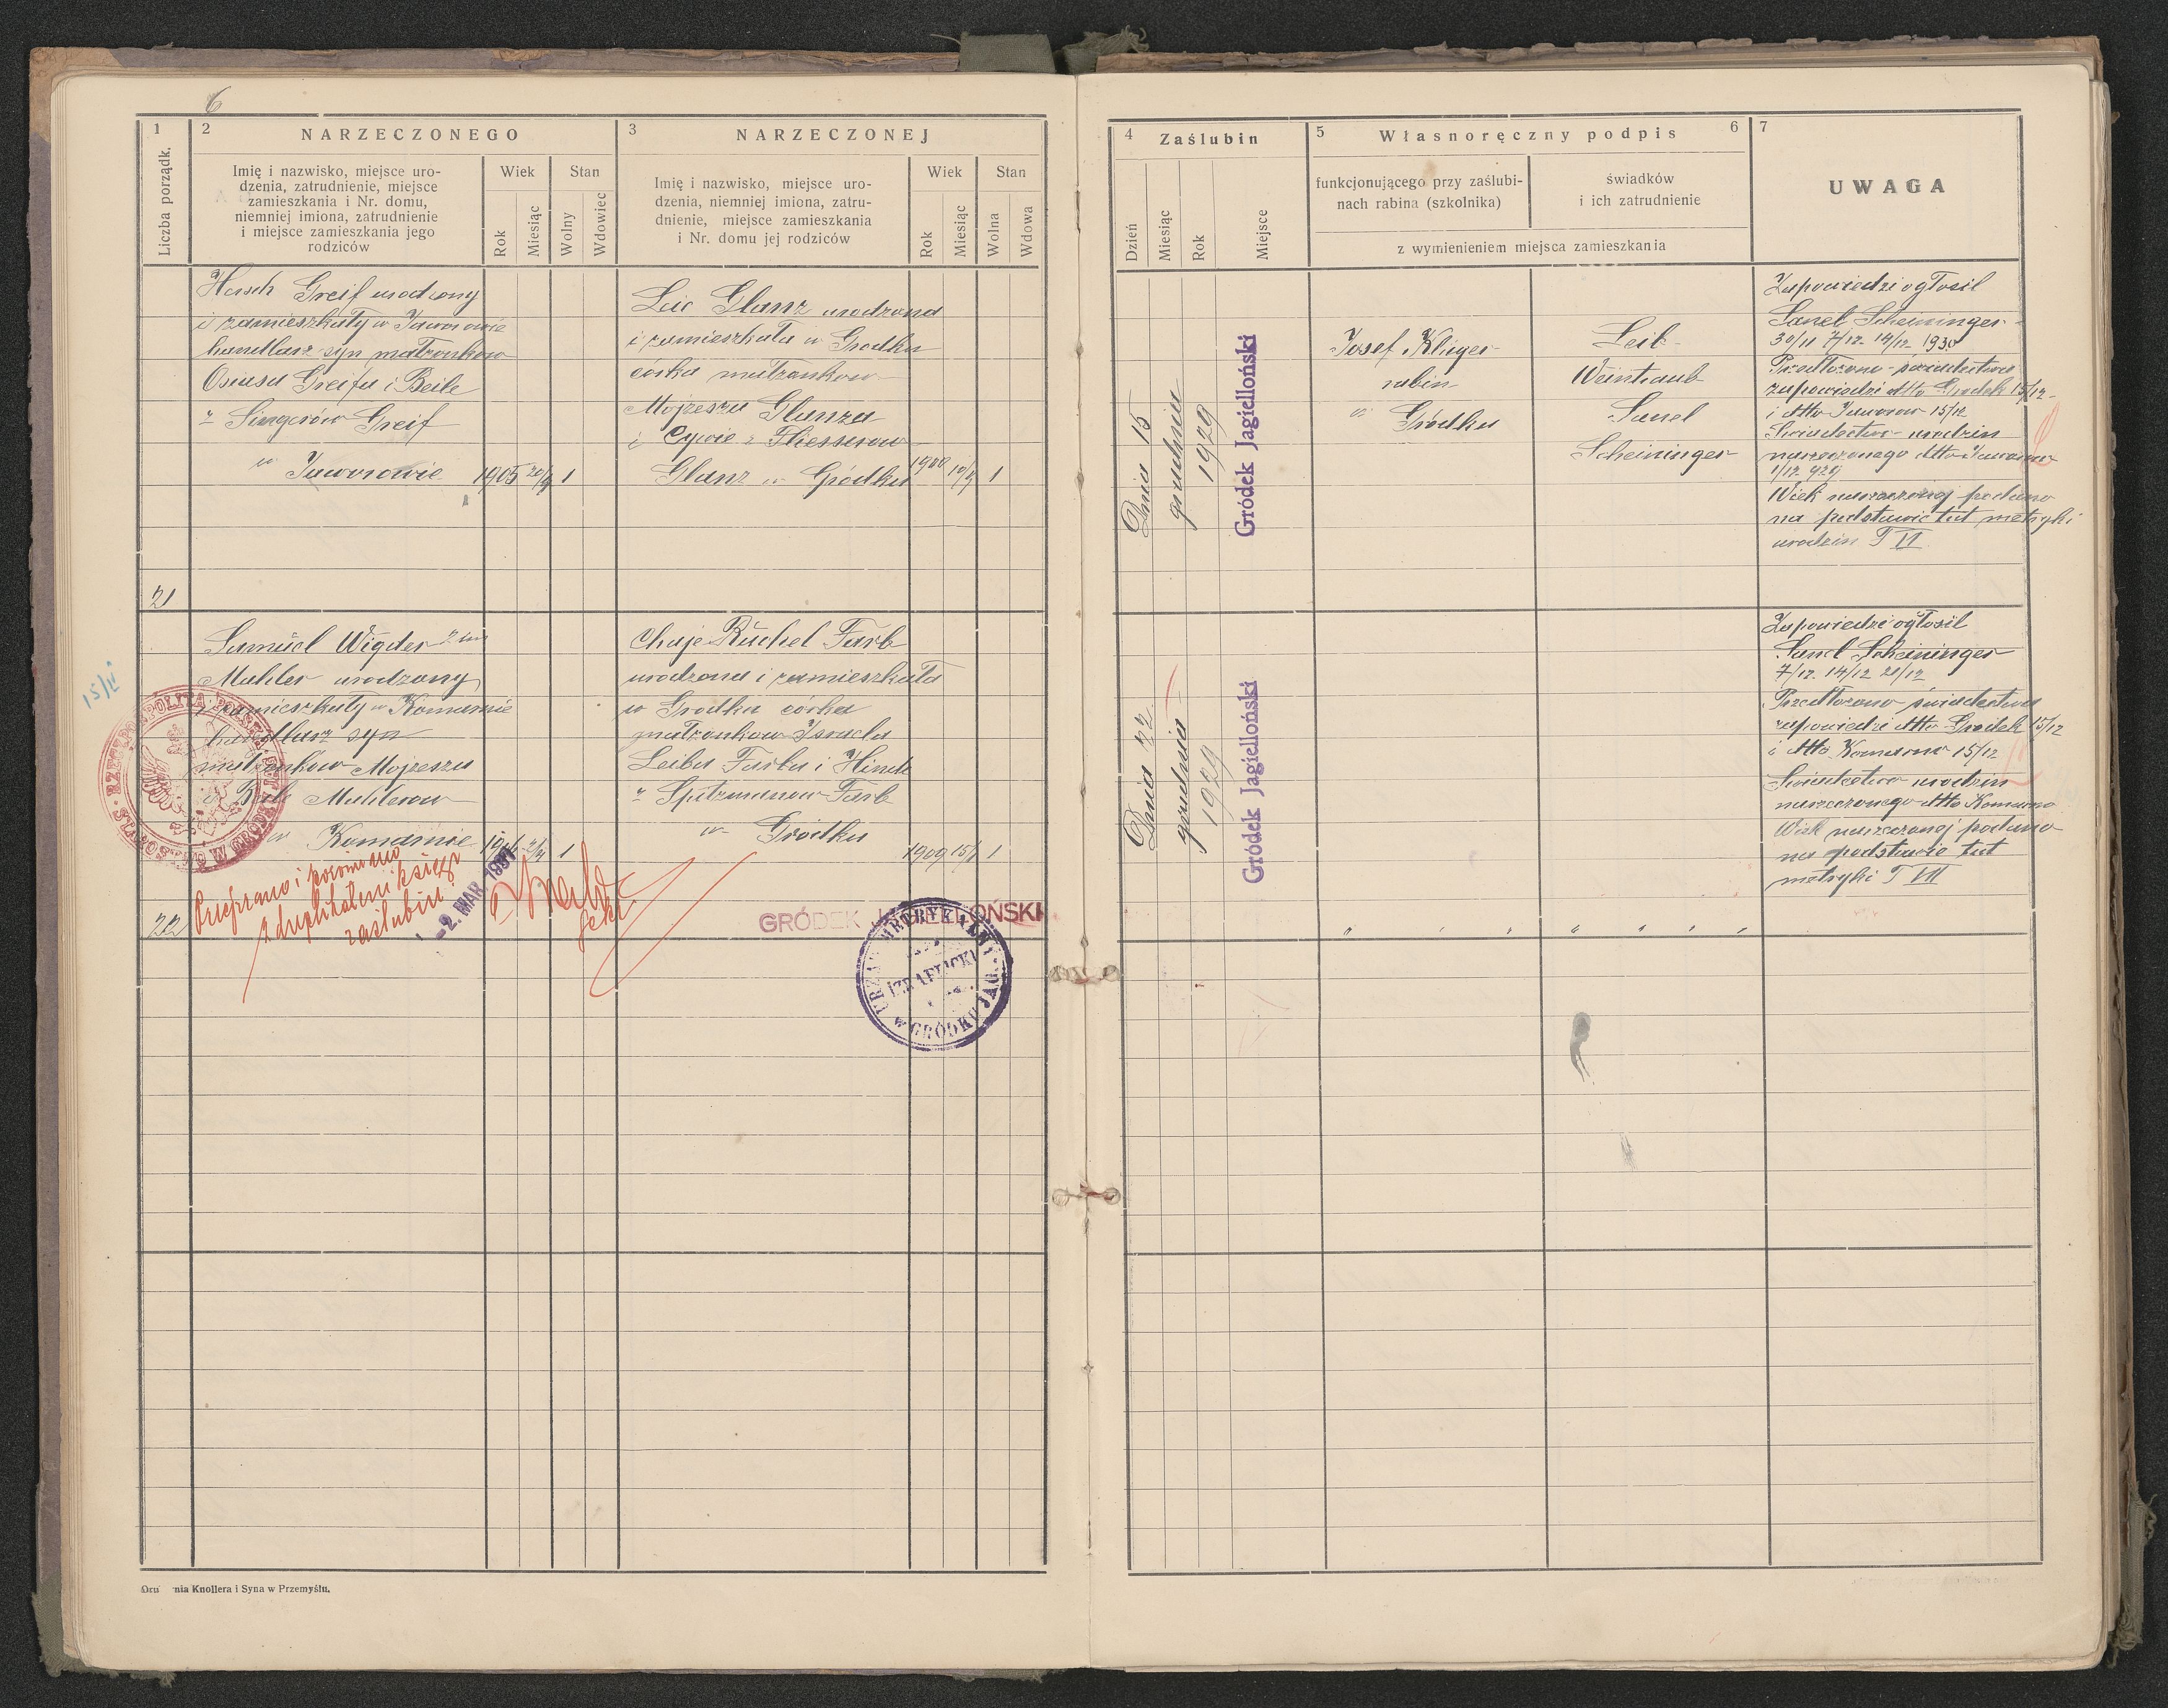 6
1
2
NARZECZONEGO
3
NARZECZONEJ
Liczba porządk.
Imię i nazwisko, miejsce uro-
dzenia, zatrudnienie, miejsce
zamieszkania i Nr. domu,
niemniej imiona, zatrudnienie
i miejsce zamieszkania jego
rodziców
Wiek
Stan
Rok
Miesiąc
Wolny
Wdowiec
Imię i nazwisko, miejsce uro-
dzenia, niemniej imiona, zatru-
dnienie, miejsce zamieszkania
i Nr. domu jej rodziców
Wiek
Stan
Rok
Miesiąc
Wolna
Wdowa
Hersch Greif urodzony
i zamieszkały w Jaworowie
handlarz syn małżonków
Osiasa Greifa i Beile
z Singerów Greif
w Jaworowie
1905 20/9 1
Leie Glanz urodzona
i zamieszkała w Grodku
córka małżonkow
Mojżesza Glanza
i Cywie z Fliesserow
Glanz w Gródku
1900 10/9 1
21
Samuel Wigder
Mahler urodzony
i zamieszkały w Komarnie
handlarz syn
małżonków Mojżesza
Mahlerow
w Komarnie
1
Chaje Ruchel Farb
urodzona i zamieszkała
w Grodku córka
małżonkow Israela
Leiba Farba i Hinde
z Spitzmanow Farb
w Gródku
1909 15/1 1
22
15/IV
RZECZPOSPOLITA POLSKA
STAROSTWO W GRÓDKU
Przejrzano i porównano
z duplikatem księgi
zaślubin
-2. MAR. 1931
sekr.
GRÓDEK JAGIELLOŃSKI
URZĄD METRYKALNY
IZRAELICKI
w GRÓDKU JAG.
nia Knollera i Syna w Przemyślu.
4
Zaślubin
5
Własnoręczny podpis
6
7
UWAGA
Dzień
Miesiąc
Rok
Miejsce
funkcjonującego przy zaślubi-
nach rabina (szkolnika)
świadków
i ich zatrudnienie
z wymienieniem miejsca zamieszkania
Dnia 15
grudnia
1929
Gródek Jagielloński
Josef Klüger
rabin
w Gródku
Leib
Weintraub
Sanel
Scheininger
Zapowiedzi ogłosił
Sanel Scheininger
30/11 7/12 14/12 1930
Przedłożono świadectwo
zapowiedzi dtto Grodek 15/12
i dtto Jaworow 15/12
Świadectwo urodzin
narzeczonego dtto Jaworow
1/12 929
Wiek narzeczonej podano
na podstawie tut metryki
urodzin T VI
Dnia 22
grudnia
1929
Gródek Jagielloński
Zapowiedzi ogłosił
Sanel Scheininger
7/12 14/12 21/12
Przedłożono świadectwa
zapowiedzi dtto Grodek 15/12
i dtto Komarno 15/12
Świadectwo urodzin
narzeczonego dtto Komarno
Wiek narzeczonej podano
na podstawie tut
metryki T VII